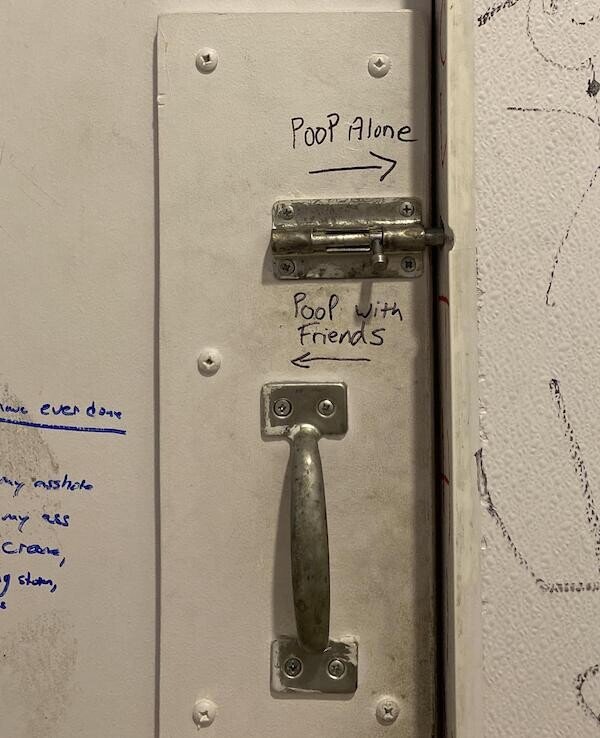 POOP Alone
POOP with
Friends
have ever done
my asshole
my ass
cream,